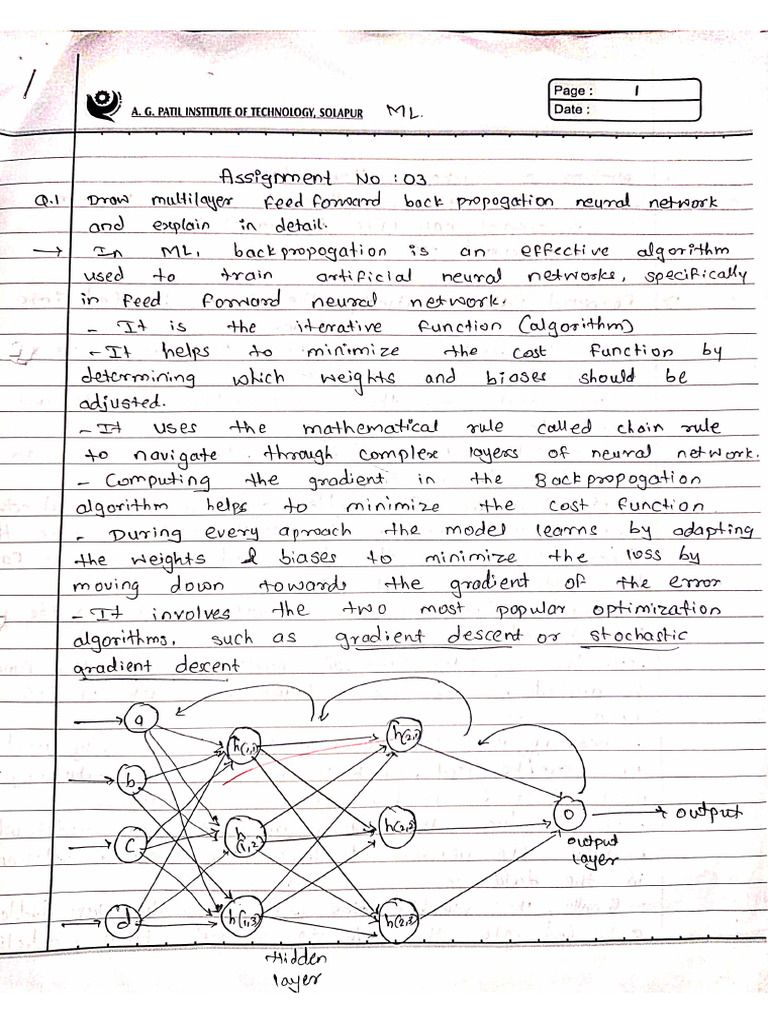 1
A. G. PATIL INSTITUTE OF TECHNOLOGY, SOLAPUR ML.
Page : 1
Date :
Assignment No : 03
Q.1 Draw multilayer feed forward back propogation neural network
and explain in detail.
→ In ML, backpropogation is an effective algorithm
used to train artificial neural networks, specifically
in feed forward neural network.
- It is the iterative function (algorithm)
- It helps to minimize the cost function by
determining which weights and bioses should be
adjusted.
- It uses the mathematical rule called chain rule
to navigate through complex layers of neural network.
- Computing the gradient in the Backpropogation
algorithm helps to minimize the cost function
- During every aproach the model learns by adapting
the weights & biases to minimize the loss by
moving down towards the gradient of the error
- It involves the two most popular optimization
algorithms, such as gradient descent or stochastic
gradient descent
a
h(1,1)
b
c
h(1,2)
o
output
output
layer
d
h(1,3)
h(2,3)
Hidden
layer